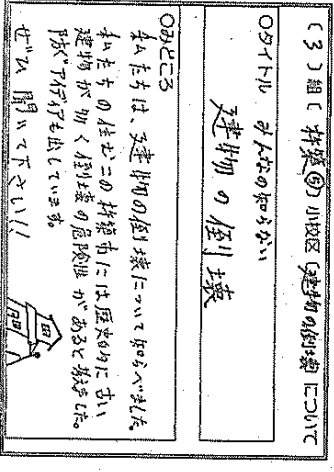 (3)組(杵築⑤)小校区(建物の倒壊)について
○タイトル みんなの知らない
建物の倒壊
○みどころ
私たちは、建物の倒壊について知らべました。
私たちの住むこの杵築市には歴史的に古い
建物が多く倒壊の危険性があると考えました。
防ぐアイディアも出しています。
ぜひ聞いて下さい!!